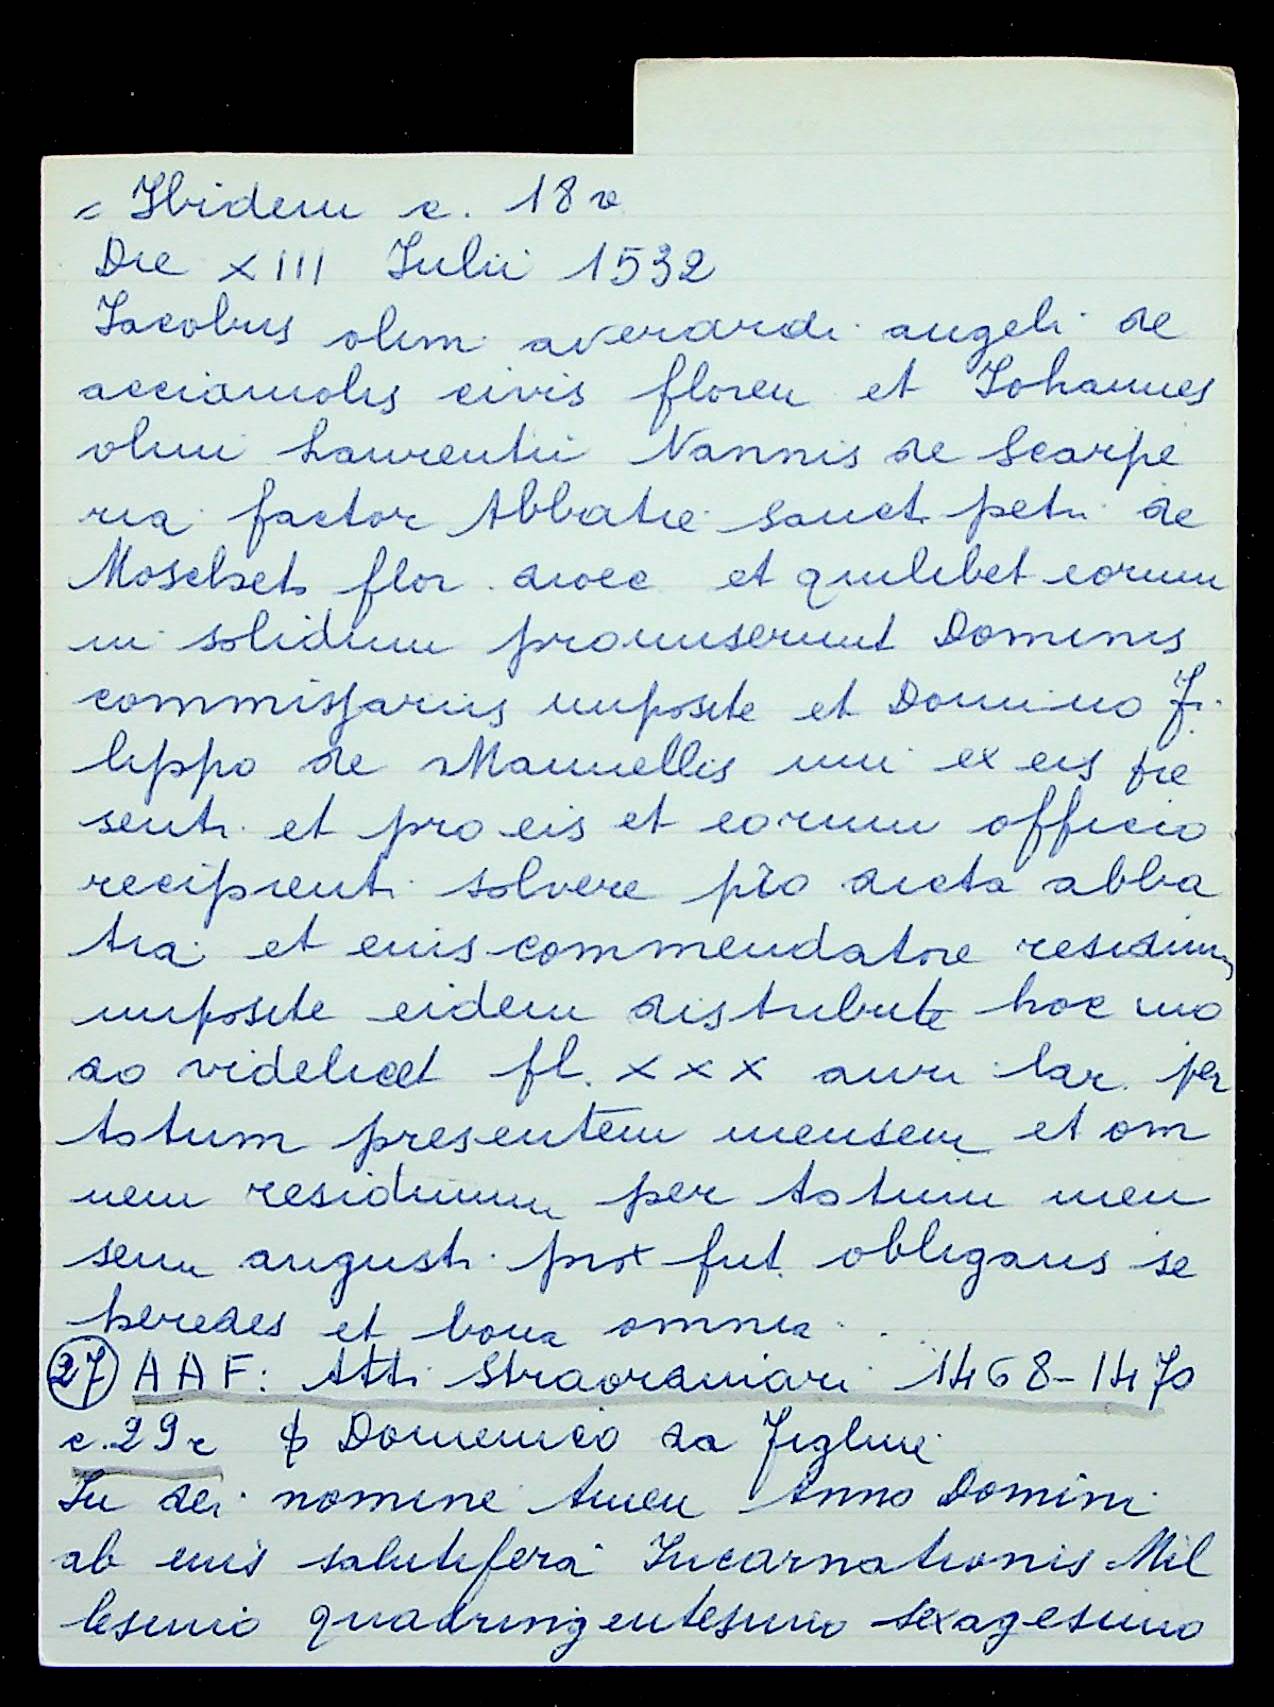 = Ibidem c. 18 v
Die XIII Iulii 1532
Iacobus olim averardi angeli de
acciaiuolis civis floren et Iohannes
olim Laurentii Nannis de Scarpe
ria factor Abbatie sancti petri de
Moscheti flor. dioec et quilibet eorum
in solidum promiserunt Dominis
commissariis imposite et Domino Fi
lippo de Mannellis uni ex eis pre
senti et pro eis et eorum officio
recipienti solvere pro dicta abba
tia et eius commendatore residium
imposite eidem distribute hoc mo
do videlicet fl. XXX auri lar. per
totum presentem mensem et om
nem residuum per totum men
sem augusti prox fut. obligans se
heredes et bona omnia . .
27 AAF: Atti Straordinari 1468-1470
c. 29r Domenico da Figline
In dei nomine Amen Anno Domini
ab eius salutifera Incarnationis Mil
lesimo quadringentesimo sexagesimo